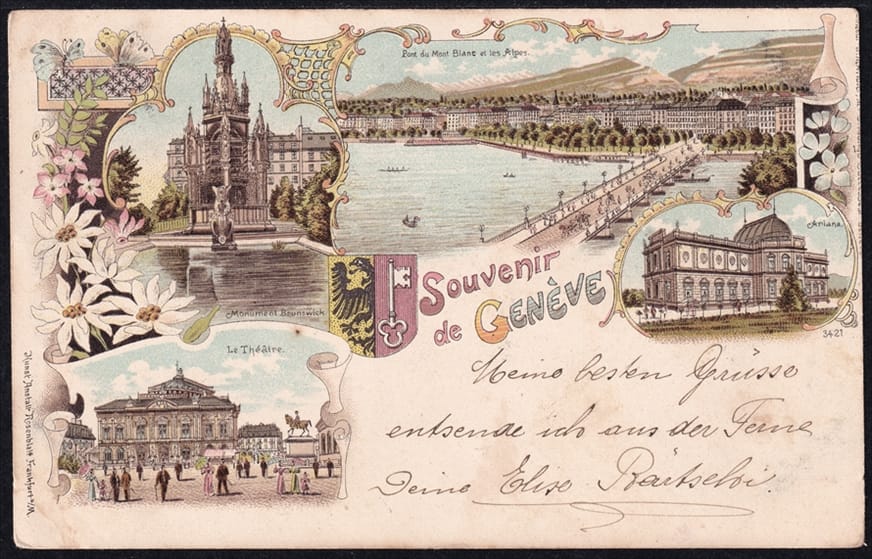 Pont du Mont Blanc et les Alpes.
Ariana.
Monument Brunswick
Souvenir
de GENÈVE
3421
Le Théâtre.
Kunst Anstalt Rosenblatt Frankfurt a/M.
Meine besten Grüsse
entsende ich aus der Ferne
Deine Elise